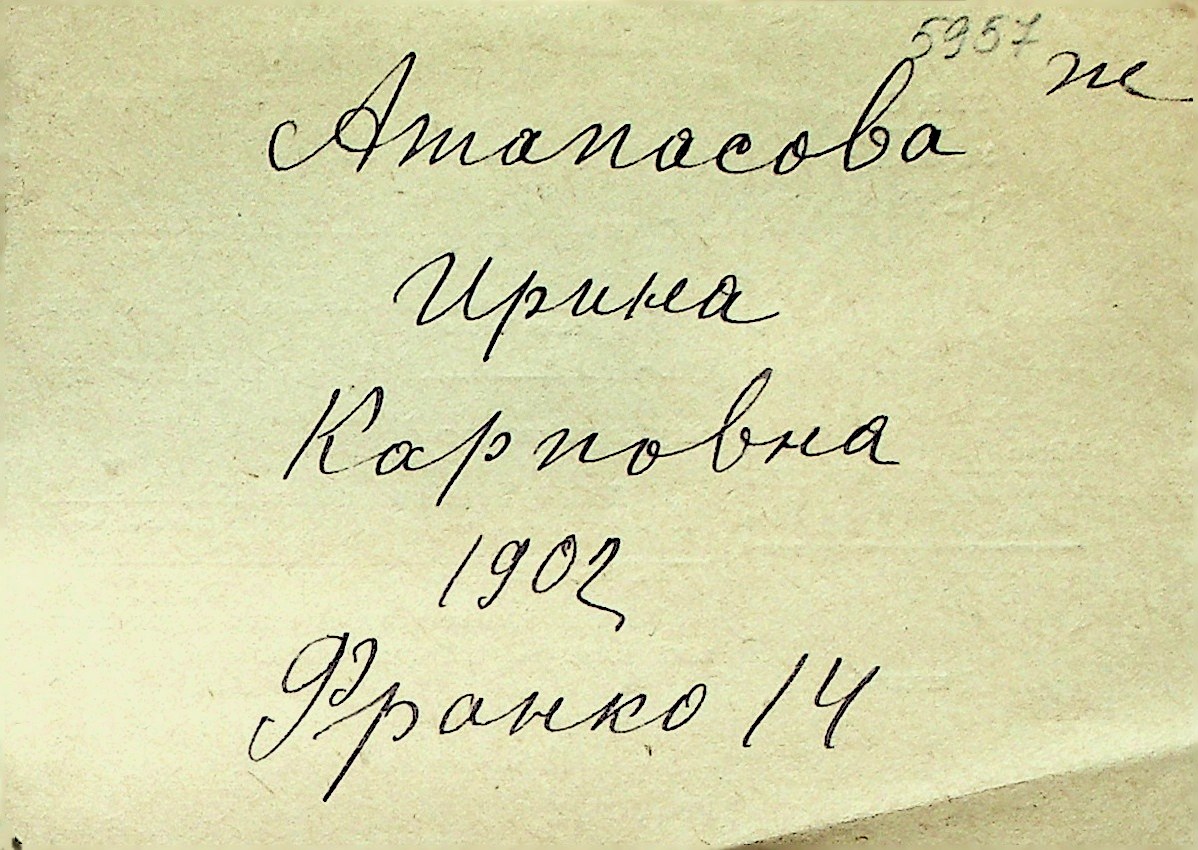 5957 ж
Атапасова
Ирина
Карповна
1902
Франко 14